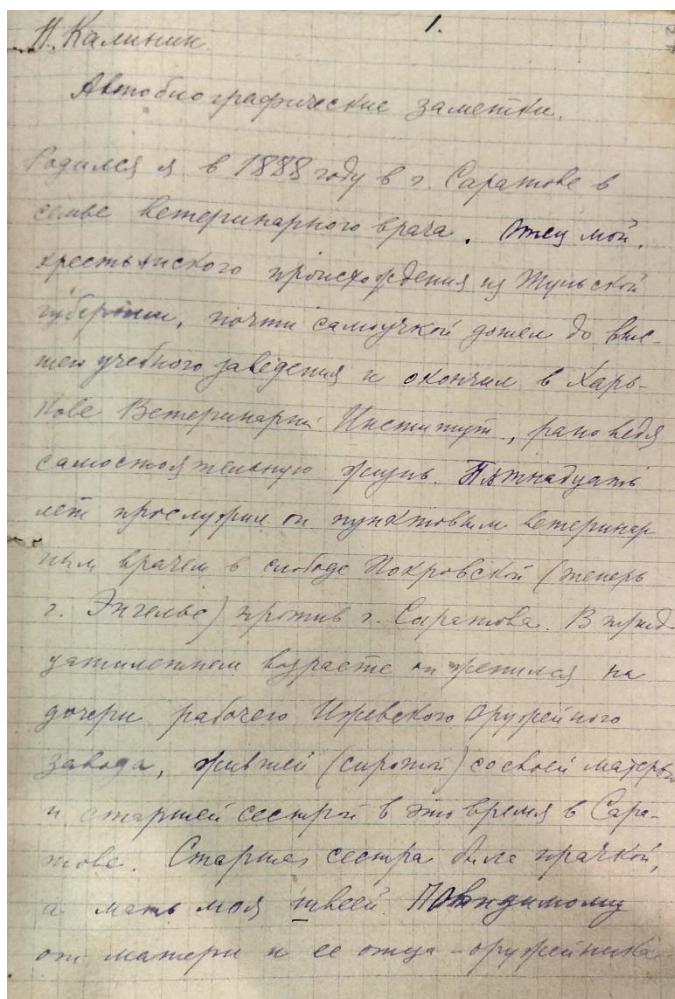 1.
Н. Калинин.
Автобиографические заметки.
Родился я в 1888 году в г. Саратове в
семье ветеринарного врача. Отец мой,
крестьянского происхождения из Тульской
губернии, почти самоучкой дошел до выс-
шего учебного заведения и окончил в Харь-
кове Ветеринарный Институт, рано ведя
самостоятельную жизнь. Пятнадцать
лет прослужил он пунктовым ветеринар
ным врачем в слободе Покровской (теперь
г. Энгельс) против г. Саратова. В трид
цатилетнем возрасте он женился на
дочери рабочего Ижевского Оружейного
завода, жившей (сиротой) со своей матерью
и старшей сестрой в это время в Сара-
тове. Старшая сестра была прачкой,
а мать моя швеей. Повидимому
от матери и ее отца-оружейника